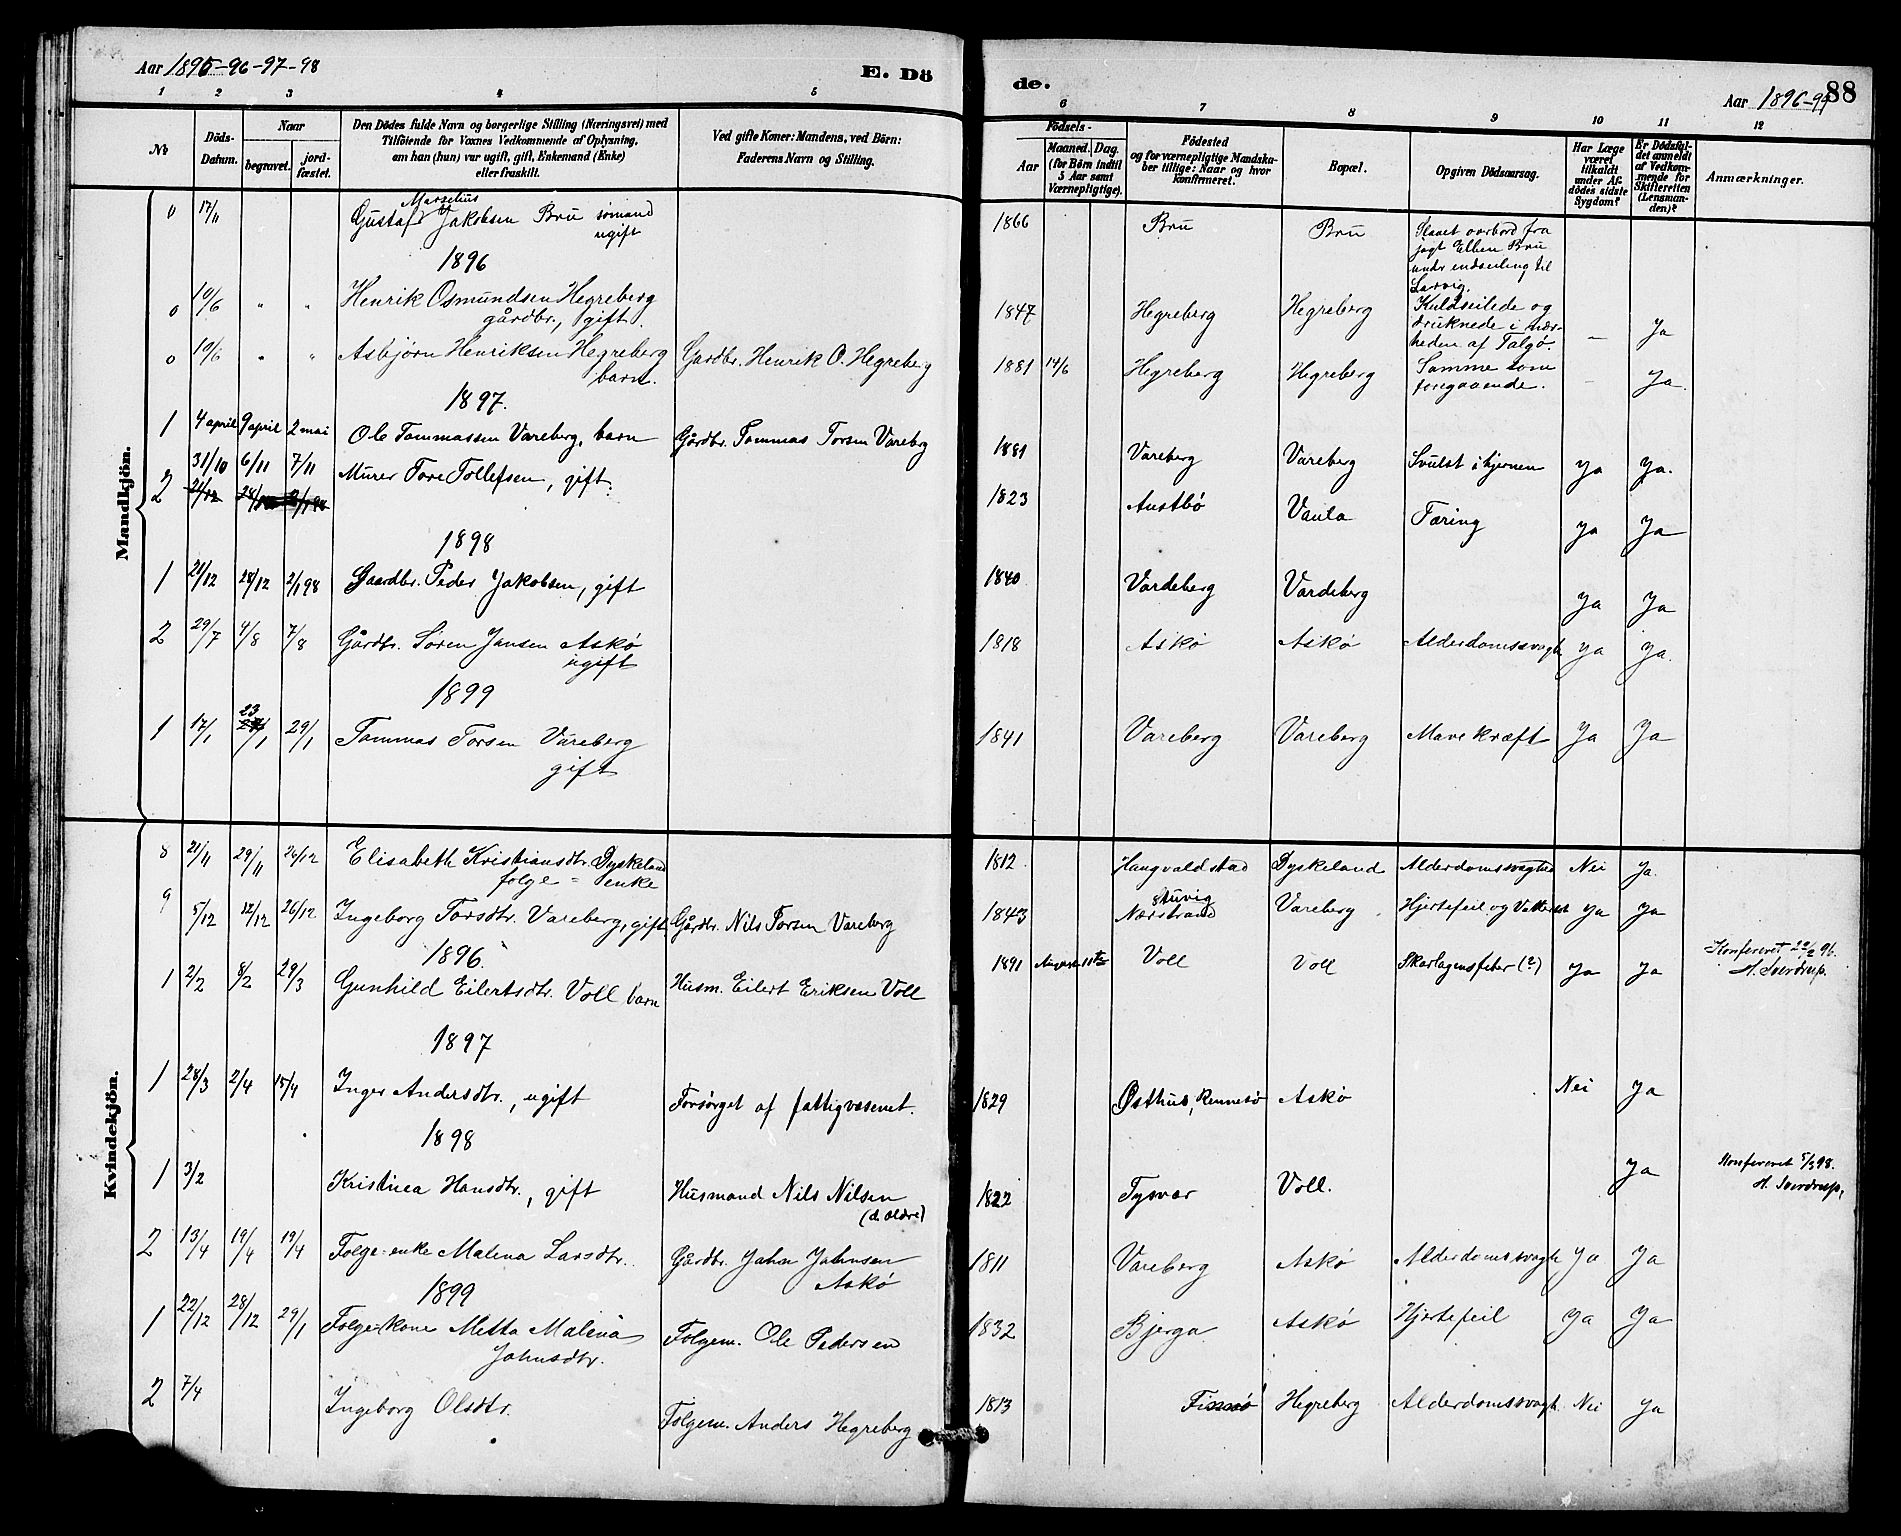 Aar 1895-96-97-98
E. Dö
de.
Aar 1896-99
88
1 2 3 4 5
6 7 8 9 10 11 12
No
Döds-Datum.
Naar
begravet.
jord-fæstet.
Den Dödes fulde Navn og borgerlige Stilling (Næringsvei) med
Tilföiende for Voxnes Vedkommende af Oplysning,
om han (hun) var ugift, gift, Enkemand (Enke)
eller fraskilt.
Ved gifte Koner: Mandens, ved Börn:
Faderens Navn og Stilling.
Födsels-
Aar
Maaned. Dag.
(for Börn indtil
5 Aar samt
Værnepligtige).
Födested
og for værnepligtige Mandska-
ber tillige: Naar og hvor
konfirmeret.
Bopæl.
Opgiven Dödsaarsag.
Har Læge
været
tilkaldt
under Af-
dödes sidste
Sygdom?
Er Dödsfal-
det anmeldt
af Vedkom-
mende for
Skifteretten
(Lensman-
den)?
Anmærkninger.
Mandkjön.
0 17/11 Gustaf Marselius Jakobsen Bru sømand ugift 1866 Bru Bru Slaaet overbord fra jagt Ellen Bru under indseiling til Larvig.
1896
0 10/6 " " Henrik Osmundsen Hegreberg gårdbr., gift. 1847 Hegreberg Hegreberg Kuldseilede og druknede i nær-heden af Talgø. — Ja
0 10/6 " " Asbjørn Henriksen Hegreberg barn. Gardbr. Henrik O. Hegreberg 1881 14/6 Hegreberg Hegreberg Samme som foregaaende. — Ja.
1897.
1 4 april 9 april 2 mai Ole Tammassen Vareberg, barn Gårdbr. Tammas Torsen Vareberg 1881 Vareberg Vareberg Svulst i hjernen Ja Ja.
2 31/10 6/11 7/11 Murer Tore Tollefsen, gift. 1823 Austbø Vaula Tæring Ja Ja
21/12 28/12 2/1 98
1898
1 21/12 28/12 2/1 98 Gaardbr. Peder Jakobsen, gift 1840 Vardeberg Vardeberg Ja Ja
2 29/7 4/8 7/8 Gårdbr. Søren Jansen Askø ugift 1818 Askø Askø Alderdomssvagh. Ja Ja.
1899
1 17/1 23/1 29/1 Tammas Torsen Vareberg gift 1841 Vareberg Vareberg Mavekræft Ja Ja
Kvindekjön.
8 21/11 29/11 26/12 Elisabeth Kristiansdtr. Dyskeland folge-enke 1812. Haugvaldstad Dyskeland Alderdomssvaghed Nei Ja.
9 5/12 12/12 26/12 Ingeborg Torsdtr. Vareberg, gift Gårdbr. Nils Torsen Vareberg 1843 Stuvig Nærstrand Vareberg Hjertefeil og Vattersot Ja Ja
1896.
1 2/2 8/2 29/3 Gunhild Eilertsdtr. Voll barn Husm. Eilert Eriksen Voll 1891 August 11te Voll Voll Skarlagensfeber (?) Ja Ja Konfereret 22/2 96. H. Sverdrup.
1897
1 28/3 2/4 15/4 Inger Andersdtr., ugift Forsørget af fattigvæsenet. 1829 Østhus, Rennesø Askø Nei Ja
1898
1 3/2 Kristina Hansdtr., gift Husmand Nils Nilsen (d. ældre) 1822 Tysvær Voll. Ja Konfereret 5/3 98. H. Sverdrup,
2 13/4 19/4 19/4 Folge-enke Malena Larsdtr. Gårdbr. Jahn Jahnsen Askø 1811 Vareberg Askø Alderdomssvagh. Ja Ja
1899
1 22/12 28/12 29/1 Folge-kone Metta Malena Jahnsdtr. Folgem. Ole Pedersen 1832 Bjerga Askø Hjertefeil Ja Ja
2 7/4 Ingeborg Olsdtr. Folgem. Anders Hegreberg 1813 Finnø Hegreberg Alderdomssvagh. Nei Ja